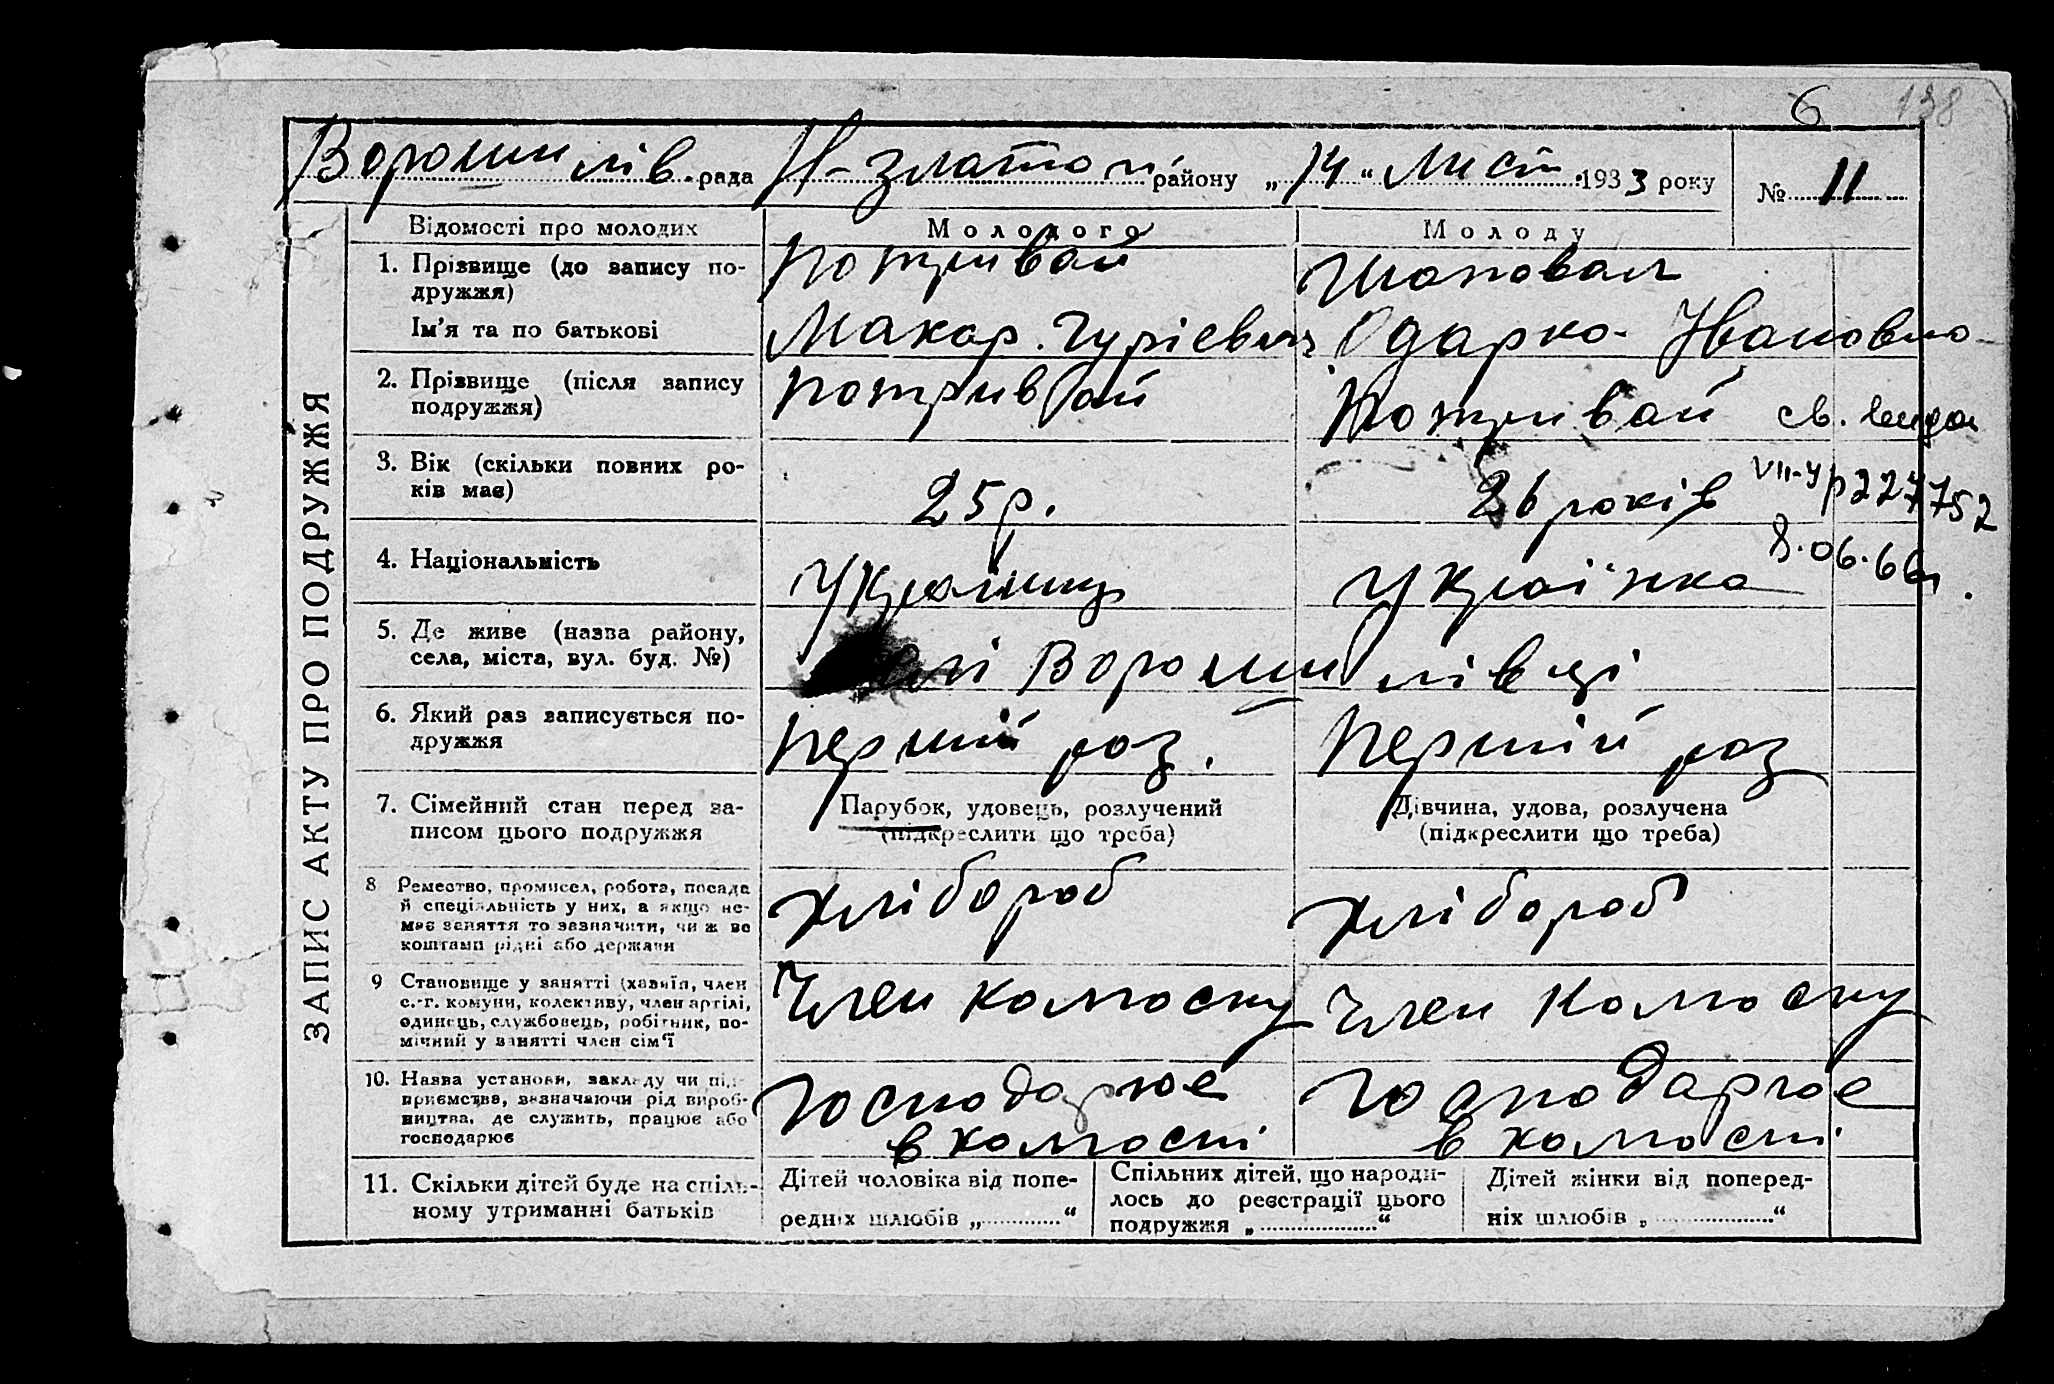 6 138
Ворошилів. рада Н-Златопі району „14“ Лист. 1933 року № 11
ЗАПИС АКТУ ПРО ПОДРУЖЖЯ
Відомості про молодих Молодого Молоду
1. Прізвище (до запису по-
дружжя)
Потривай Шаповал
Ім'я та по батькові
Макар. Гурієвич Одарка Івановна
2. Прізвище (після запису
подружжя)
Потривай Потривай
св. видан
3. Вік (скільки повних ро-
ків має)
25 р. 26 років
VII-УР 227752
8.06.66
4. Національність
Українець Українка
5. Де живе (назва району,
села, міста, вул. буд. №)
Ворошилівці
6. Який раз записується по-
дружжя
Перший раз. Перший раз
7. Сімейний стан перед за-
писом цього подружжя
Парубок, удовець, розлучений
(підкреслити що треба)
Дівчина, удова, розлучена
(підкреслити що треба)
8 Ремество, промисел, робота, посада
й спеціяльність у них, а якщо не-
має заняття то зазначити, чи ж ве
коштами рідні або держави
Хлібороб Хлібороб
9 Становище у занятті (хазяїн, член
с.-г. комуни, колективу, член артілі,
одинець, службовець, робітник, по-
мічний у занятті член сім'ї
Член колгоспу Член колгоспу
10. Назва установи, закладу чи під-
приємства, зазначаючи рід вироб-
ництва, де служить, працює або
господарює
Господарює Господарює
в колгоспі в колгоспі
11. Скільки дітей буде на спіль-
ному утриманні батьків
Дітей чоловіка від попе-
редніх шлюбів „............“
Спільних дітей, що народи-
лось до реєстрації цього
подружжя „..................“
Дітей жінки від поперед-
ніх шлюбів „..................“